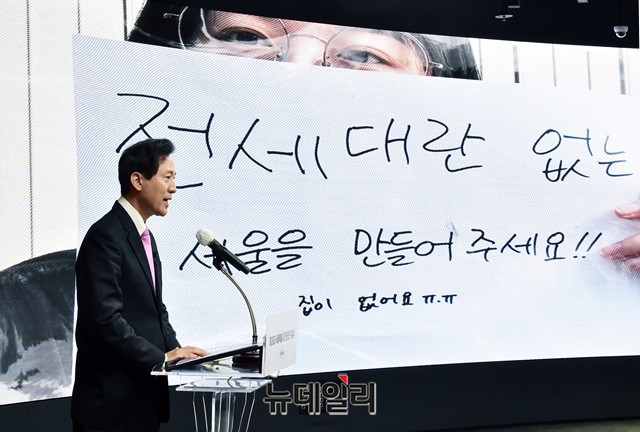 전세대란 없는
서울을 만들어주세요!!
집이 없어요 ㅠ.ㅠ
뉴데일리